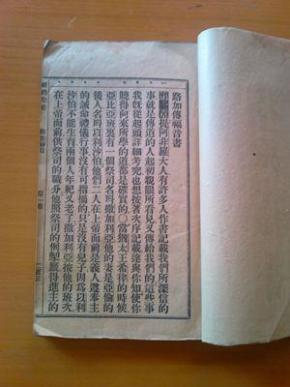 路加傳福音書
提阿非羅大人有許多人作書記載我們所深信的
事就是傳道的人起初親眼所看見又傳給我們的這些事
我旣從起頭詳細考究也想按著次序記載達與你知使你
曉得向來所學的道都是確實的〇當猶太王希律的時候
亞比亞班裏有一個祭司名叫撒加利亞他的妻是亞倫的
後人名叫以利沙伯他們二人在上帝面前是義人遵奉主
的誡命禮儀行事沒有可指摘的只是沒有兒子因爲以利
沙伯不能生育兩個人年紀又老了撒加利亞按他的班次
在上帝面前供祭司的職分他照祭司的規矩掣籤得進主的